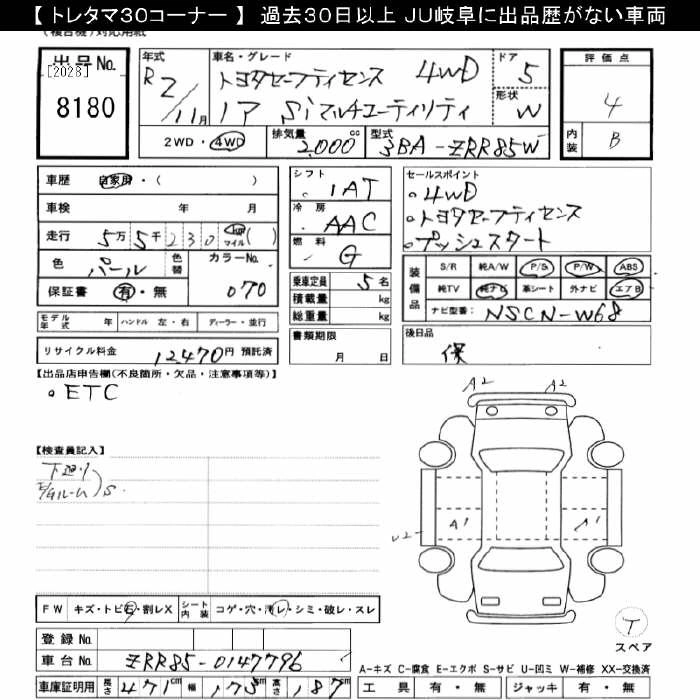 【 トレタマ30コーナー 】 過去30日以上 JU岐阜に出品歴がない車両
(複合機)対応用紙
出品No.
[2028]
8180
年式 R2/11月
車名・グレード トヨタセーフティセンス 4WD
ノア Siマルチユーティリティ
ドア 5
形状 W
2WD・4WD
排気量 2,000 cc
型式 3BA-ZRR85W
評価点 4
内装 B
車歴 自家用・( )
車検 年 月
走行 5万5千230 km マイル( )
色 パール 色替
カラーNo. 070
保証書 有・無
モデル年式 年 ハンドル 左・右 ディーラー・並行
リサイクル料金 12470円 預託済
シフト IAT
冷房 AAC
燃料 G
乗車定員 5名
積載量 kg
総重量 kg
書類期限
月 日
セールスポイント
・4WD
・トヨタセーフティセンス
・プッシュスタート
装備品
S/R 純A/W P/S P/W ABS
純TV 純ナビ 革シート 外ナビ エアB
ナビ型番: NSCN-W68
後日品
保
【出品店申告欄(不良箇所・欠品・注意事項等)】
・ETC
【検査員記入】
下廻り
E/gルーム S
A2 A2
A1 A1
U2
FW キズ・トビ石・割レX シート内装 コゲ・穴・汚レ・シミ・破レ・スレ
登録No.
車台No. ZRR85-0147796
車庫証明用 長さ 471cm 幅 173cm 高さ 187cm
T
スペア
A-キズ C-腐食 E-エクボ S-サビ U-凹ミ W-補修 XX-交換済
工具 有・無 ジャッキ 有・無